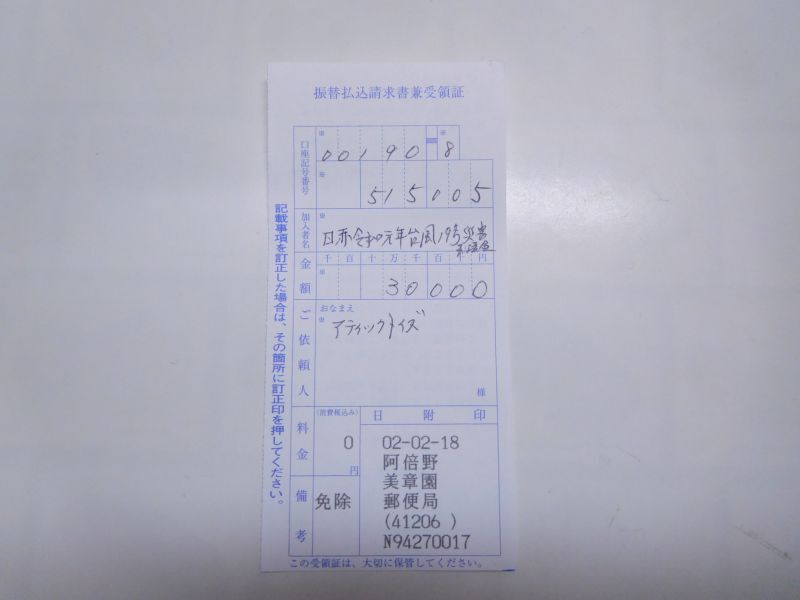 振替払込請求書兼受領証
口座記号番号
※ ※
00190 8
※
515005
加入者名
※
日赤令和元年台風19号災害
義援金
金額
千百十万千百十円
※
30000
ご依頼人
おなまえ
※
アティックトイズ
様
料金
(消費税込み)
0
円
日附印
02-02-18
阿倍野
美章園
郵便局
(41206 )
N94270017
備考
免除
記載事項を訂正した場合は、その箇所に訂正印を押してください。
この受領証は、大切に保管してください。